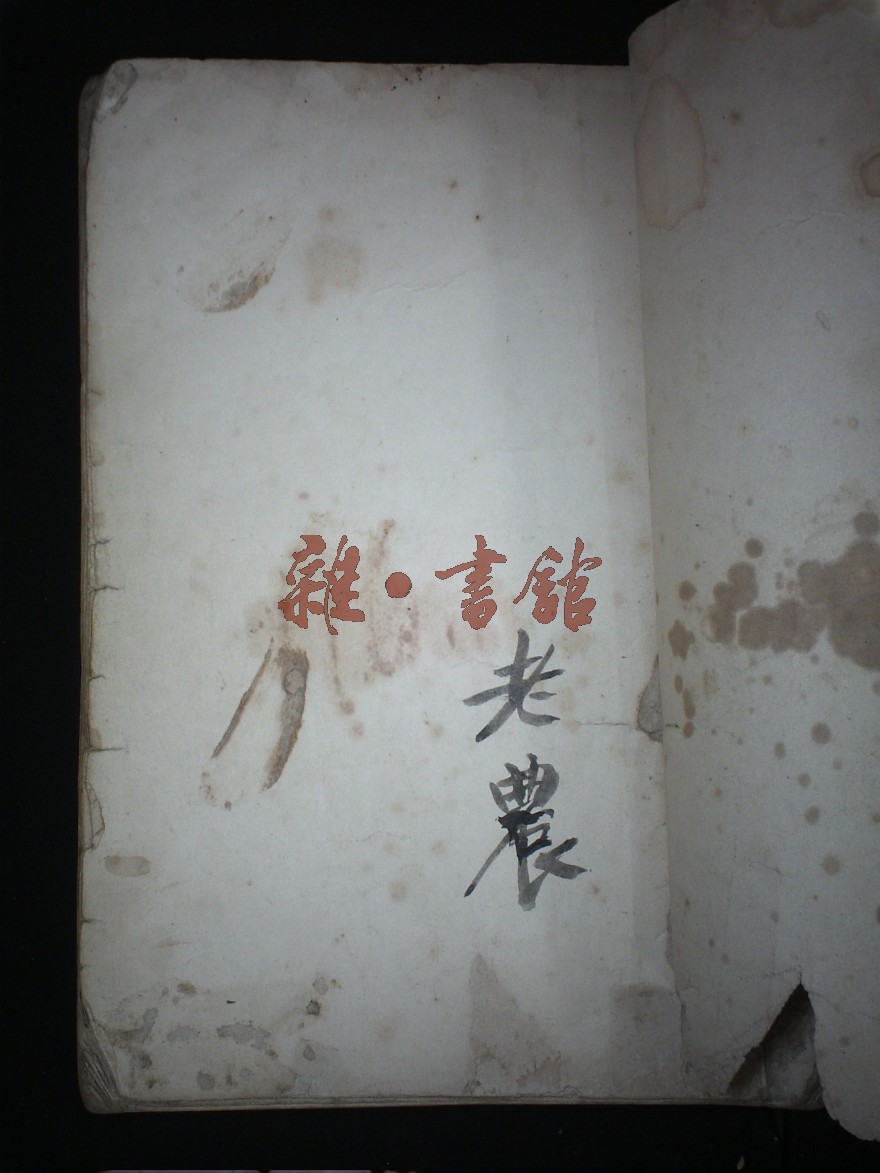 雜·書館
老農